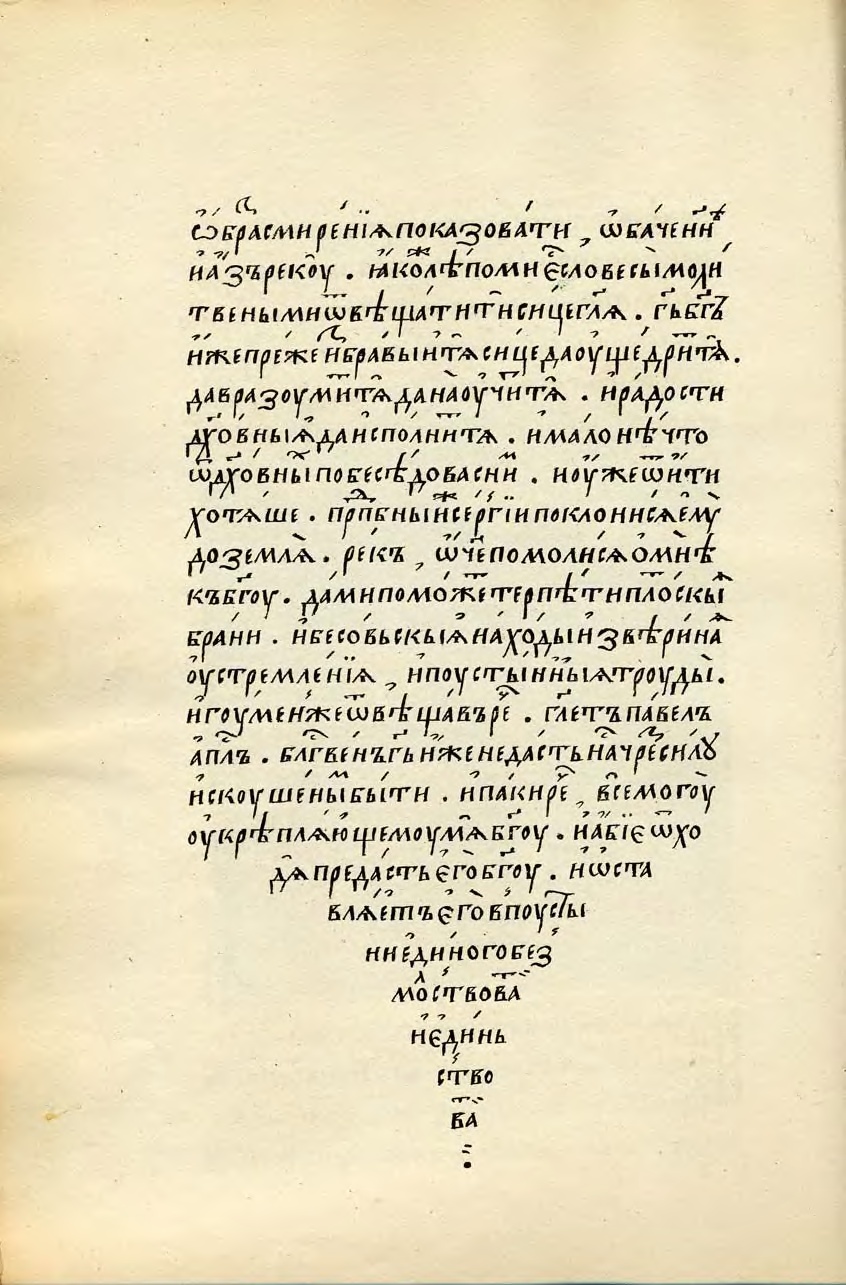 ѻ҆бра́ⷥ смире́нїѧ показова́ти , ѡ҆ба́че н҆нⷯъ
на зъ рекоу̀ . ꙗ҆́ко лѣ́по мни є҆ⷭ словесы̀ моли́
твеными ѿвѣща́ти тѝ сице гл҃ѧ . гь҃ бг҃ъ
и҆́же пре́же и҆збра́вы́и тѧ̀ сице да оу҆ще́дриⷮ тѧ̀ .
да вразоуми́ⷮ тѧ̀ да наоу҆чиⷮ тѧ̀ . и҆ ра́дости
дх҃о́вныѧ да и҆спо́лниⷮ тѧ̀ . и҆ ма́ло нѣ́что
ѿ дх҃о́вныⷯ побесѣ́довав с ниⷨ . и҆ оу҆жѐ ѿи҆тѝ
хотѧ́ше . прⷣпⷣбный же се́ргїи поклони́сѧ є҆мꙋ̀
до землѧ̀ . ре́къ , ѿ҃че помоли́сѧ о мнѣ̀
къ бг҃оу . да ми помо́жеⷮ терпѣ́ти пло́тскыѧ
бра́ни . и҆ бесо́вьскыѧ нахо́ды и҆ звѣ́ринаѧ
оу҆стремле́нїѧ , и҆ поусты́нныѧ троуды̀ .
и҆гоу́менже ѿвѣща́въ ре́ⷱ . гл҃етъ па́велъ
а҆пⷭ҇лъ . блⷭ҇ве́нъ гь҃ и҆́же не да́сть на́ⷨ чреⷥ си́лꙋ
и҆скоуше́ныⷨ бы́ти . и҆ па́ки ре́ⷱ , все́могоу̀
оу҆крѣплѧ́ющемоу мѧ̀ бг҃оу . и҆ а҆́бїє ѿхо
дѧ̀ преда́сть є҆го̀ бг҃оу . и҆ ѡ҆ста
влѧ́етъ є҆го̀ в поусты́
ни є҆ди́ного без
мо́лствоваⷮ
и҆ є҆ди́нь
ство
ваⷮ